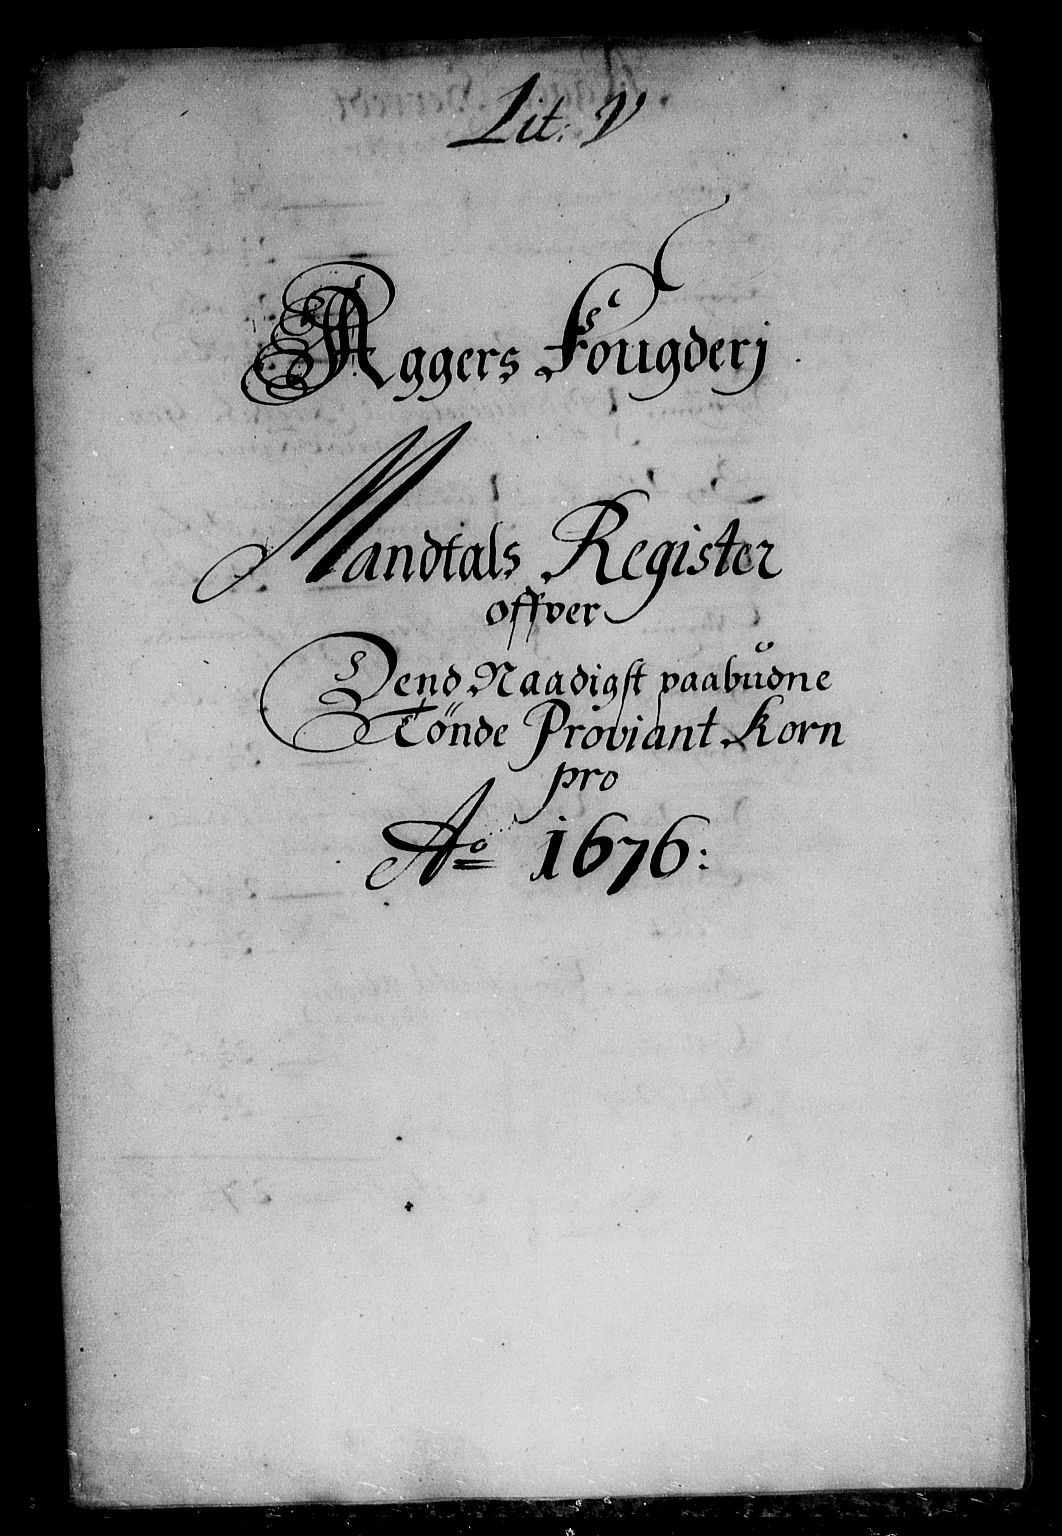 Lit: V
Aggers Fougderj
Mandtals Register
offver
Dend Naadigst paabudne
Tönde Proviant Korn
pro
Ao 1676: